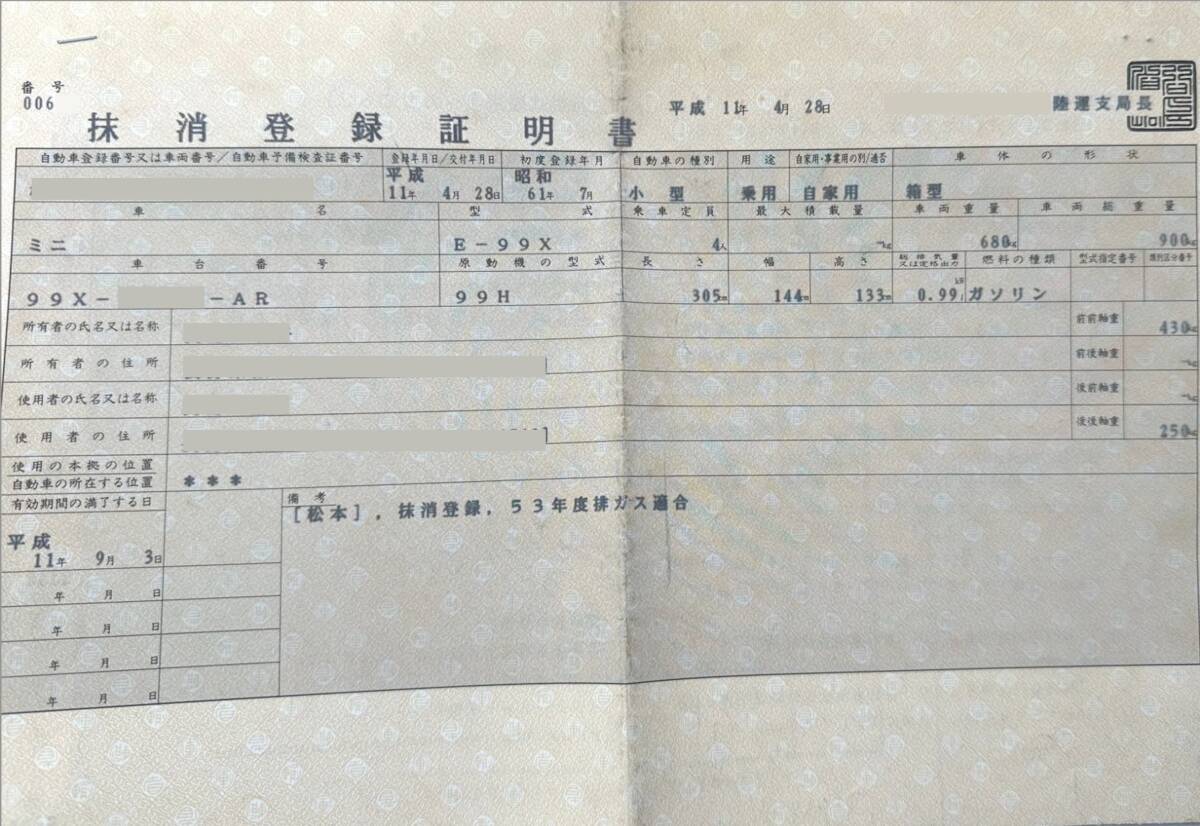 番号
006
平成 11年 4月 28日 陸運支局長
抹消登録証明書
自動車登録番号又は車両番号／自動車予備検査証番号 登録年月日/交付年月日 初度登録年月 自動車の種別 用途 自家用・事業用の別/適否 車体の形状
平成 11年 4月 28日 昭和 61年 7月 小型 乗用 自家用 箱型
車名 型式 乗車定員 最大積載量 車両重量 車両総重量
ミニ E-99X 4人 -kg 680kg 900kg
車台番号 原動機の型式 長さ 幅 高さ 総排気量又は定格出力 燃料の種類 型式指定番号 類別区分番号
99X- -AR 99H 305cm 144cm 133cm 0.99 kW l ガソリン
所有者の氏名又は名称 前前軸重 430kg
所有者の住所 前後軸重 -kg
使用者の氏名又は名称 後前軸重 -kg
使用者の住所 後後軸重 250kg
使用の本拠の位置
自動車の所在する位置 ＊＊＊
有効期間の満了する日 備考
[松本], 抹消登録, 53年度排ガス適合
平成
11年 9月 3日
年 月 日
年 月 日
年 月 日
年 月 日